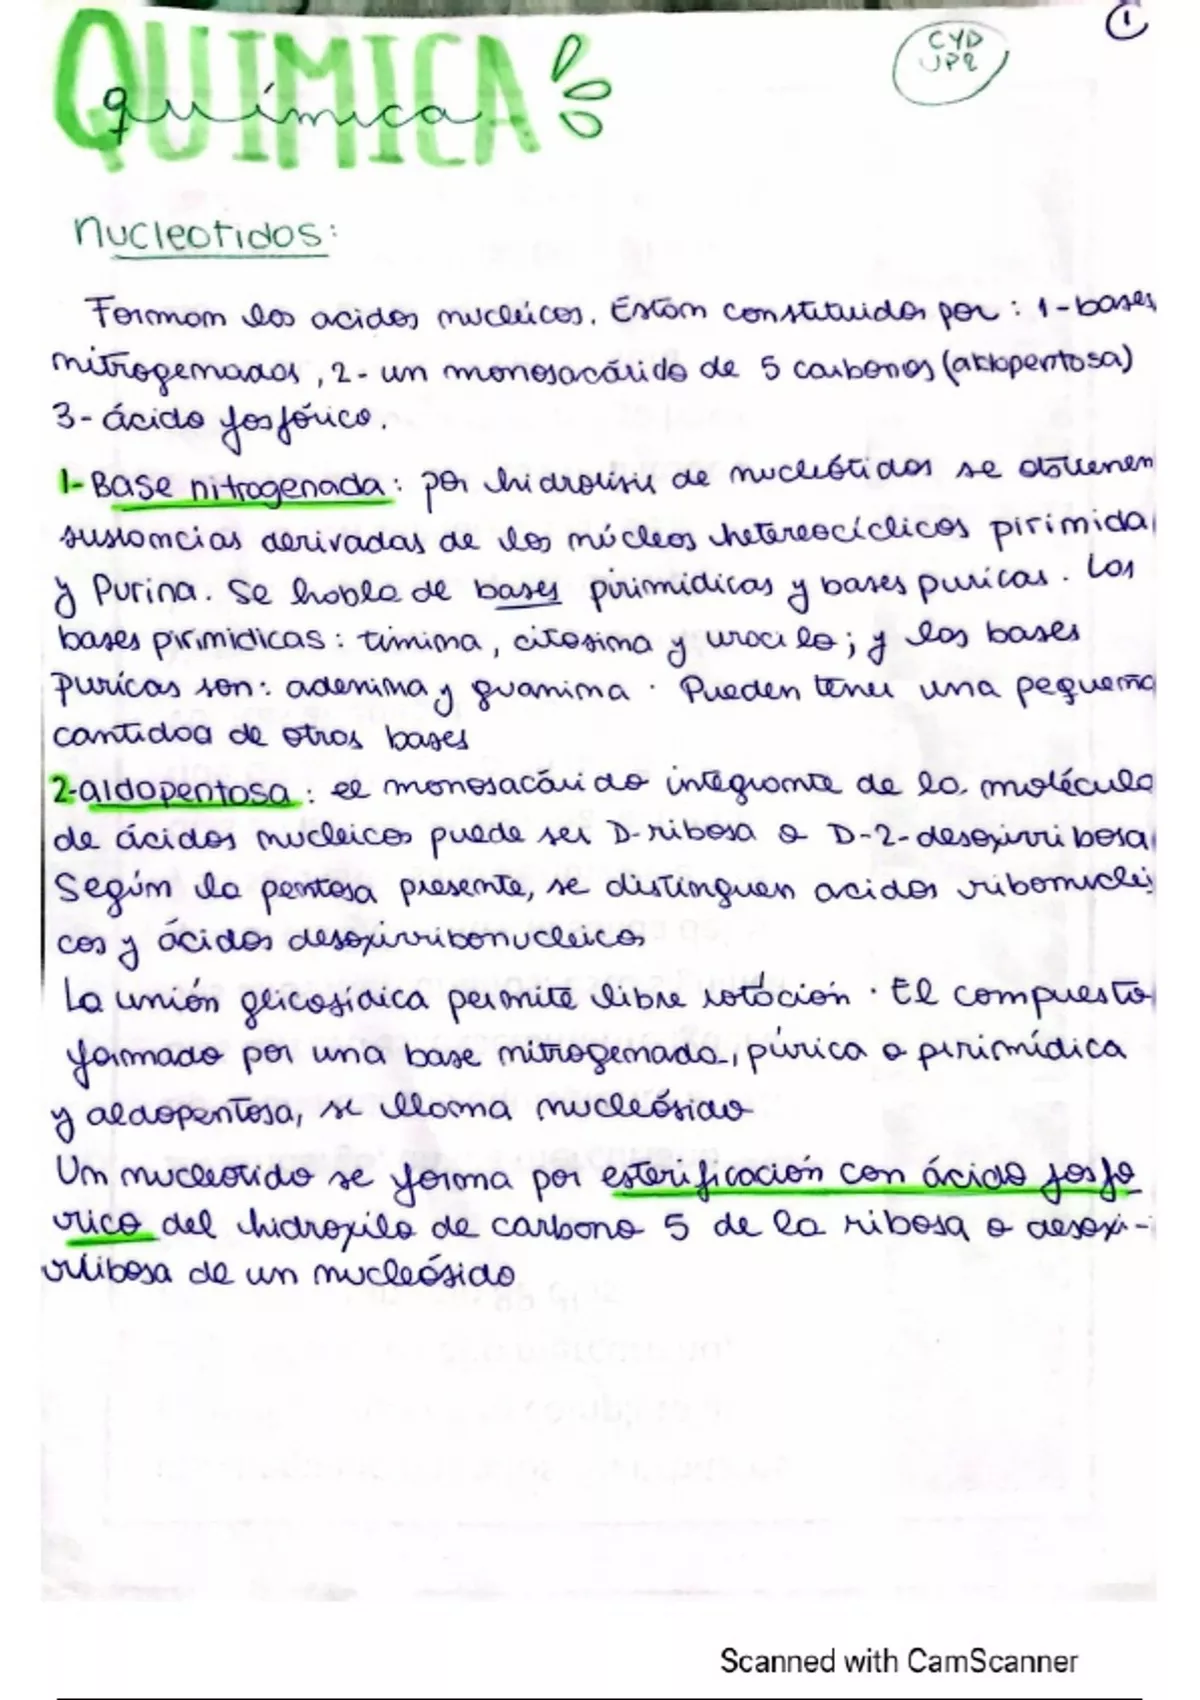 QUIMICA
química
CYD
UP2
1
nucleotidos:
Forman los acidos nucleicos. Están constituidos por: 1-bases
nitrogenadas, 2- un monosacárido de 5 carbonos (aldopentosa)
3- ácido fosfórico.
1-Base nitrogenada: por hidrolisis de nucleótidos se obtienen
sustancias derivadas de los núcleos hetereocíclicos pirimida
y Purina. Se habla de bases pirimidicas y bases puricas. Las
bases pirimidicas: timina, citosina y uracilo; y las bases
puricas son: adenina y guanina. Pueden tener una pequeña
cantidad de otras bases
2-aldopentosa: el monosacárido integrante de la molécula
de ácidos nucleicos puede ser D-ribosa o D-2-desoxirribosa
Según la pentosa presente, se distinguen acidos ribonuclei
cos y ácidos desoxirribonucleicos
La unión glicosidica permite libre rotación. El compuesto
formado por una base nitrogenada, púrica o pirimídica
y aldopentosa, se llama nucleósido
Un nucleotido se forma por esterificación con ácido fosfo
rico del hidroxilo de carbono 5 de la ribosa o desoxi-
rribosa de un nucleósido
Scanned with CamScanner